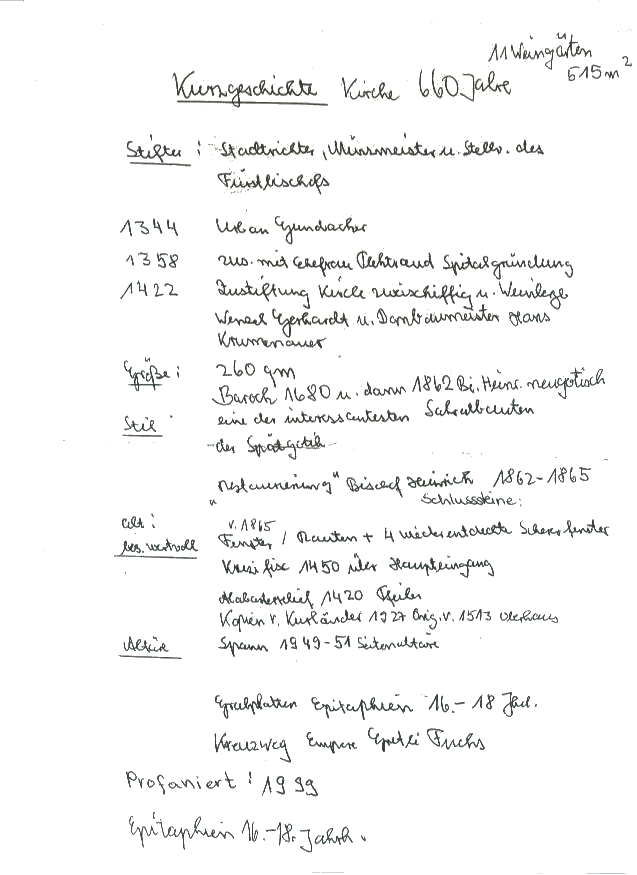 11 Weingärten
615 m²
Kurzgeschichte Kirche 660 Jahre
Stifter : Stadtrichter, Münzmeister u. Stellv. des
Fürstbischofs
1344 Urban Gundacher
1358 zus. mit Ehefrau Spitalgründung
1422 Zustiftung Kirche zweischiffig u. Weinlege
Wenzel Gerhardt u. Dombaumeister Hans
Krumenauer
Größe : 260 qm
Barock 1680 u. dann 1862 Bi. Heinr. neugotisch
Stil eine der interessantesten Sakralbauten
der Spätgotik
"Restaurierung" Bischof Heinrich 1862-1865
Schlusssteine :
alt : v. 1865
bes. wertvoll Fenster / Rauten + 4 wiederentdeckte Fenster
Kruzifix 1450 über Haupteingang
Alabasterrelief 1420
Kopien v. Kurländer 1927 Orig. v. 1513 Oberhaus
Altär Spann 1949-51 Seitenaltäre
Grabplatten Epitaphien 16.- 18 Jhd.
Kreuzweg Empore Fuchs
Profaniert : 1999
Epitaphien 16.-18. Jahrh.